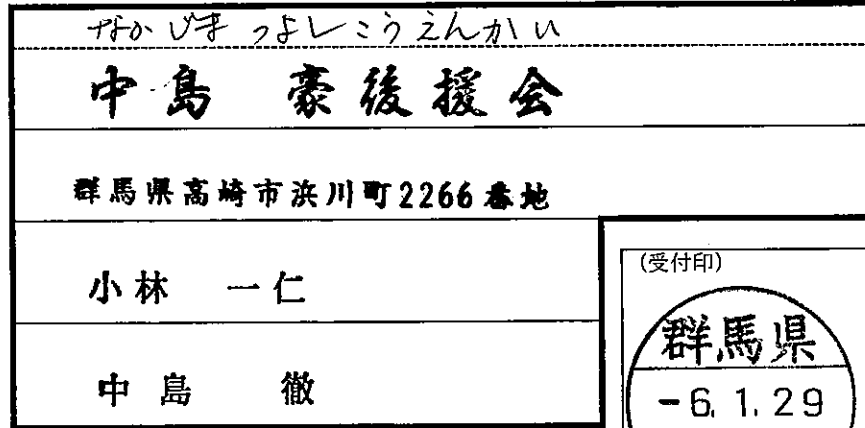 なかじまつよしこうえんかい
中島 豪後援会
群馬県高崎市浜川町2266番地
小林 一仁
中島 徹
(受付印)
群馬県
-6.1.29